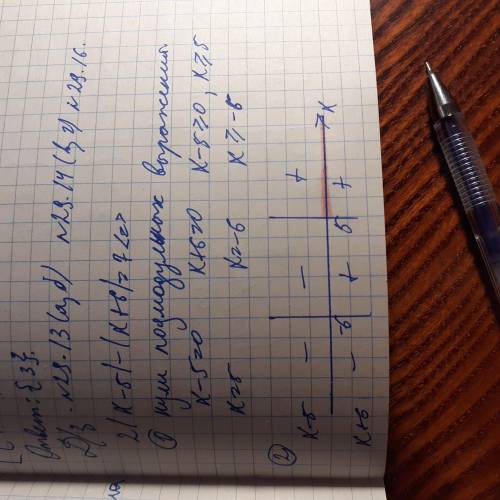 Ответ: {3}.
Д/з №29.13(а,б) №29.14(в,г) №29.16.
2|x-5|-|x+6|=7 <=>
① нули подмодульных выражений.
x-5=0 x+6=0 x-5≥0, x≥5
x=5 x=-6 x≥-6
②
x-5 - - +
-6 5 x
x+6 - + +